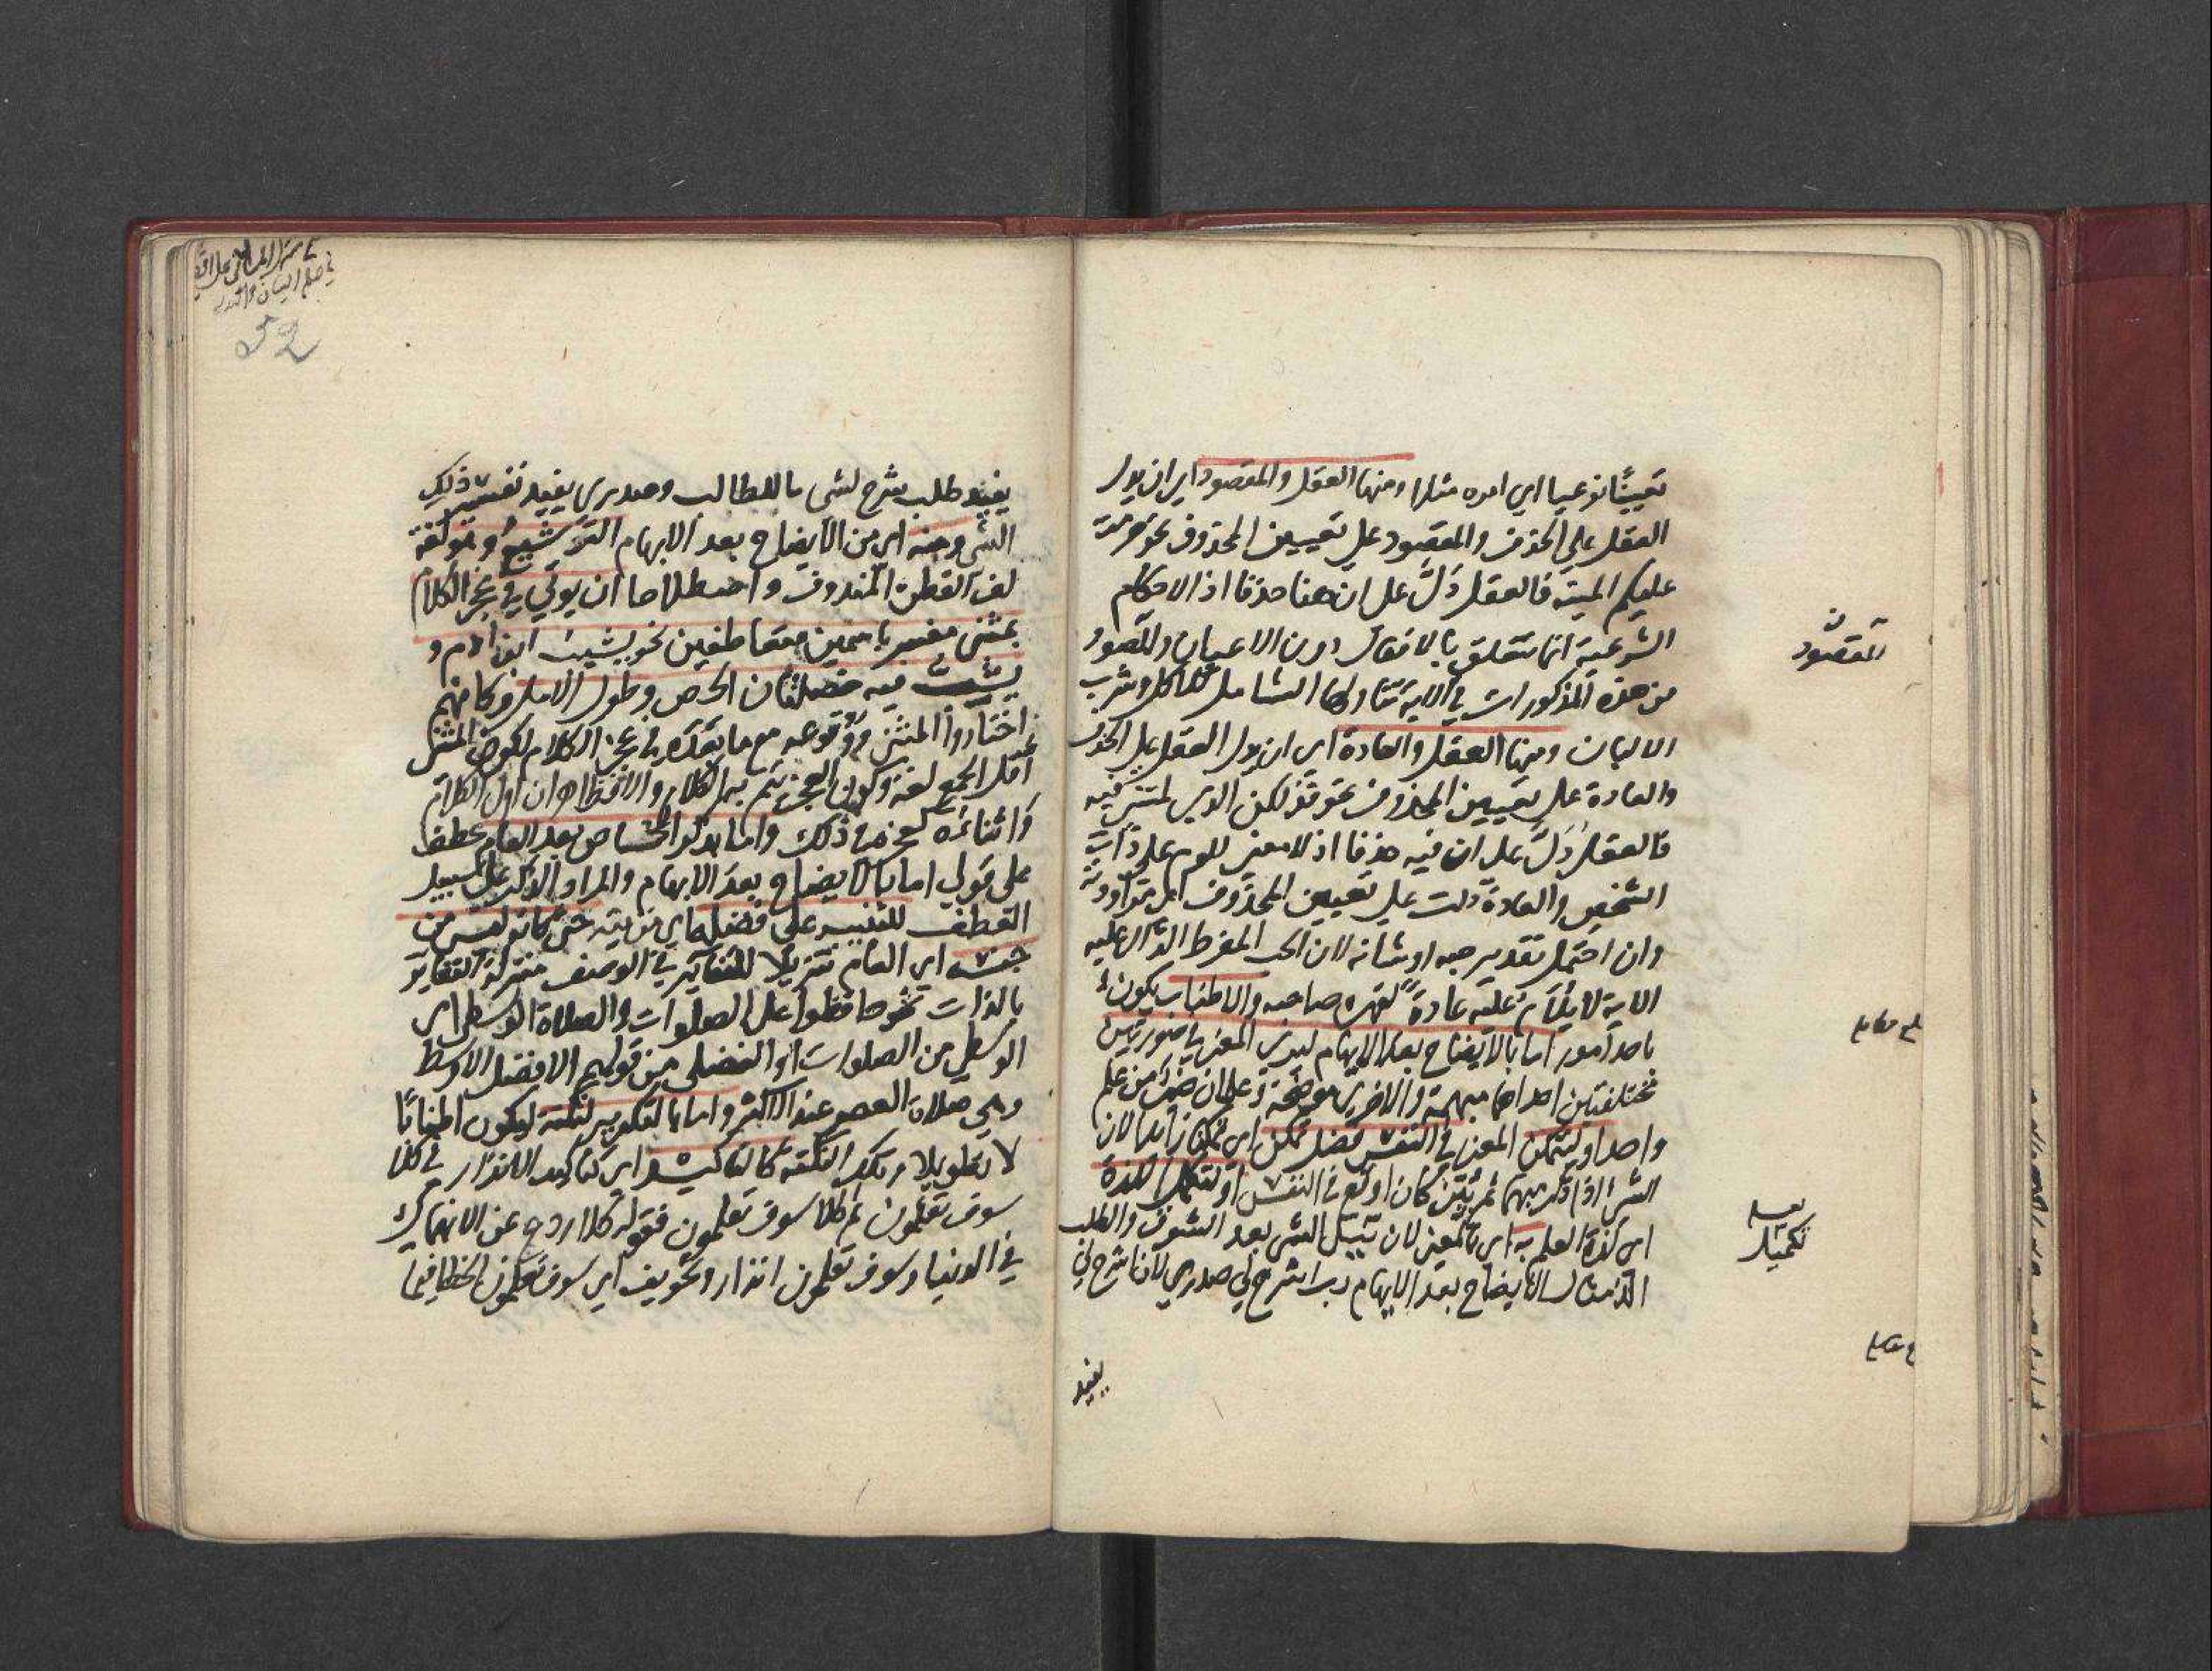 تعيينا نوعيا اي امره مثلا ومنها العقل والمقصود اي ان يدل
العقل علي الحذف والمقصود علي تعيين المحذوف نحو حرمت
عليكم الميتة فالعقل دَلَّ علي ان هنا حذفا اذ الاحكام
الشرعية انما تتعلق بالافعال دون الاعيان والمقصود
من هذه المذكورات في الاية تناولها الشامل للاكل وشرب
الالبان ومنها العقل والعادة اي ان يدل العقل علي الحذف
والعادة علي تعيين المحذوف نحو فذلكن الذي لمتنني فيه
فالعقل دَلَّ علي ان فيه حذفا اذ لا معني للوم علي ذات
الشخص والعادة دلت علي تعيين المحذوف اي مراودته
وان احتمل تقدير حبه او شانه لان الحب المفرط الدال عليه
الاية لا يلام عليه عادة لقهره صاحبه والاطناب يكون
باحد امور اما بالايضاح بعد الابهام ليري المعني في صورتين
مختلفتين احداهما مبهمة والاخري موضحة وعلمان خير من علم
واحد او ليتمكن المعني في النفس فضل تمكن اي تمكنا زائدا لان
الشئ اذا ذكر مبهما ثم بُيِّنَ كان اوقع في النفس او لتكمل اللذة
اي لذة العلم به اي بالمعني لان نيل الشئ بعد الشوق والطلب
الذ مثال الايضاح بعد الابهام رب اشرح لي صدري لان اشرح لي
المقصود
تكميل
يفيد
52
يفيد طلب شرح لشئ ما للطالب وصدري يفيد تفسير ذلك
الشئ ومنه اي من الايضاح بعد الابهام التوشيع وهو لغة
لف القطن المندوف واصطلاحا ان يوتي في عجز الكلام
بمثنى مفسر باسمين متعاطفين نحو يشيب ابن ادم و
يشب فيه خصلتان الحرص وطول الامل وكانهم
اختاروا المثني ووقوعه مع ما بعده في عجز الكلام لكون المثني
اقل الجمع لغة وكون العجز يتم به الكلام والا فظاهر ان اول الكلام
واثناءه كعجزه في ذلك واما بذكر الخاص بعد العام عطف
علي قولي اما بالايضاح بعد الابهام والمراد الذكر علي سبيل
العطف للتنبيه علي فضله اي مزيته حتي كانه ليس من
جنسه اي العام تنزيلا للتغاير في الوصف منزلة التغاير
بالذات نحو حافظوا علي الصلوات والصلاة الوسطي اي
الوسطي من الصلوات او الفضلي من قولهم الافضل الاوسط
وهي صلاة العصر عند الاكثر واما بالتكرير لنكتة ليكون اطنابا
لا تطويلا وتلك النكتة كالتاكيد اي كتاكيد الانذار في كلا
سوف تعلمون ثم كلا سوف تعلمون فقوله كلا ردع عن الانهماك
في الدنيا وسوف تعلمون انذار وتخويف اي سوف تعلمون الخطا فيما